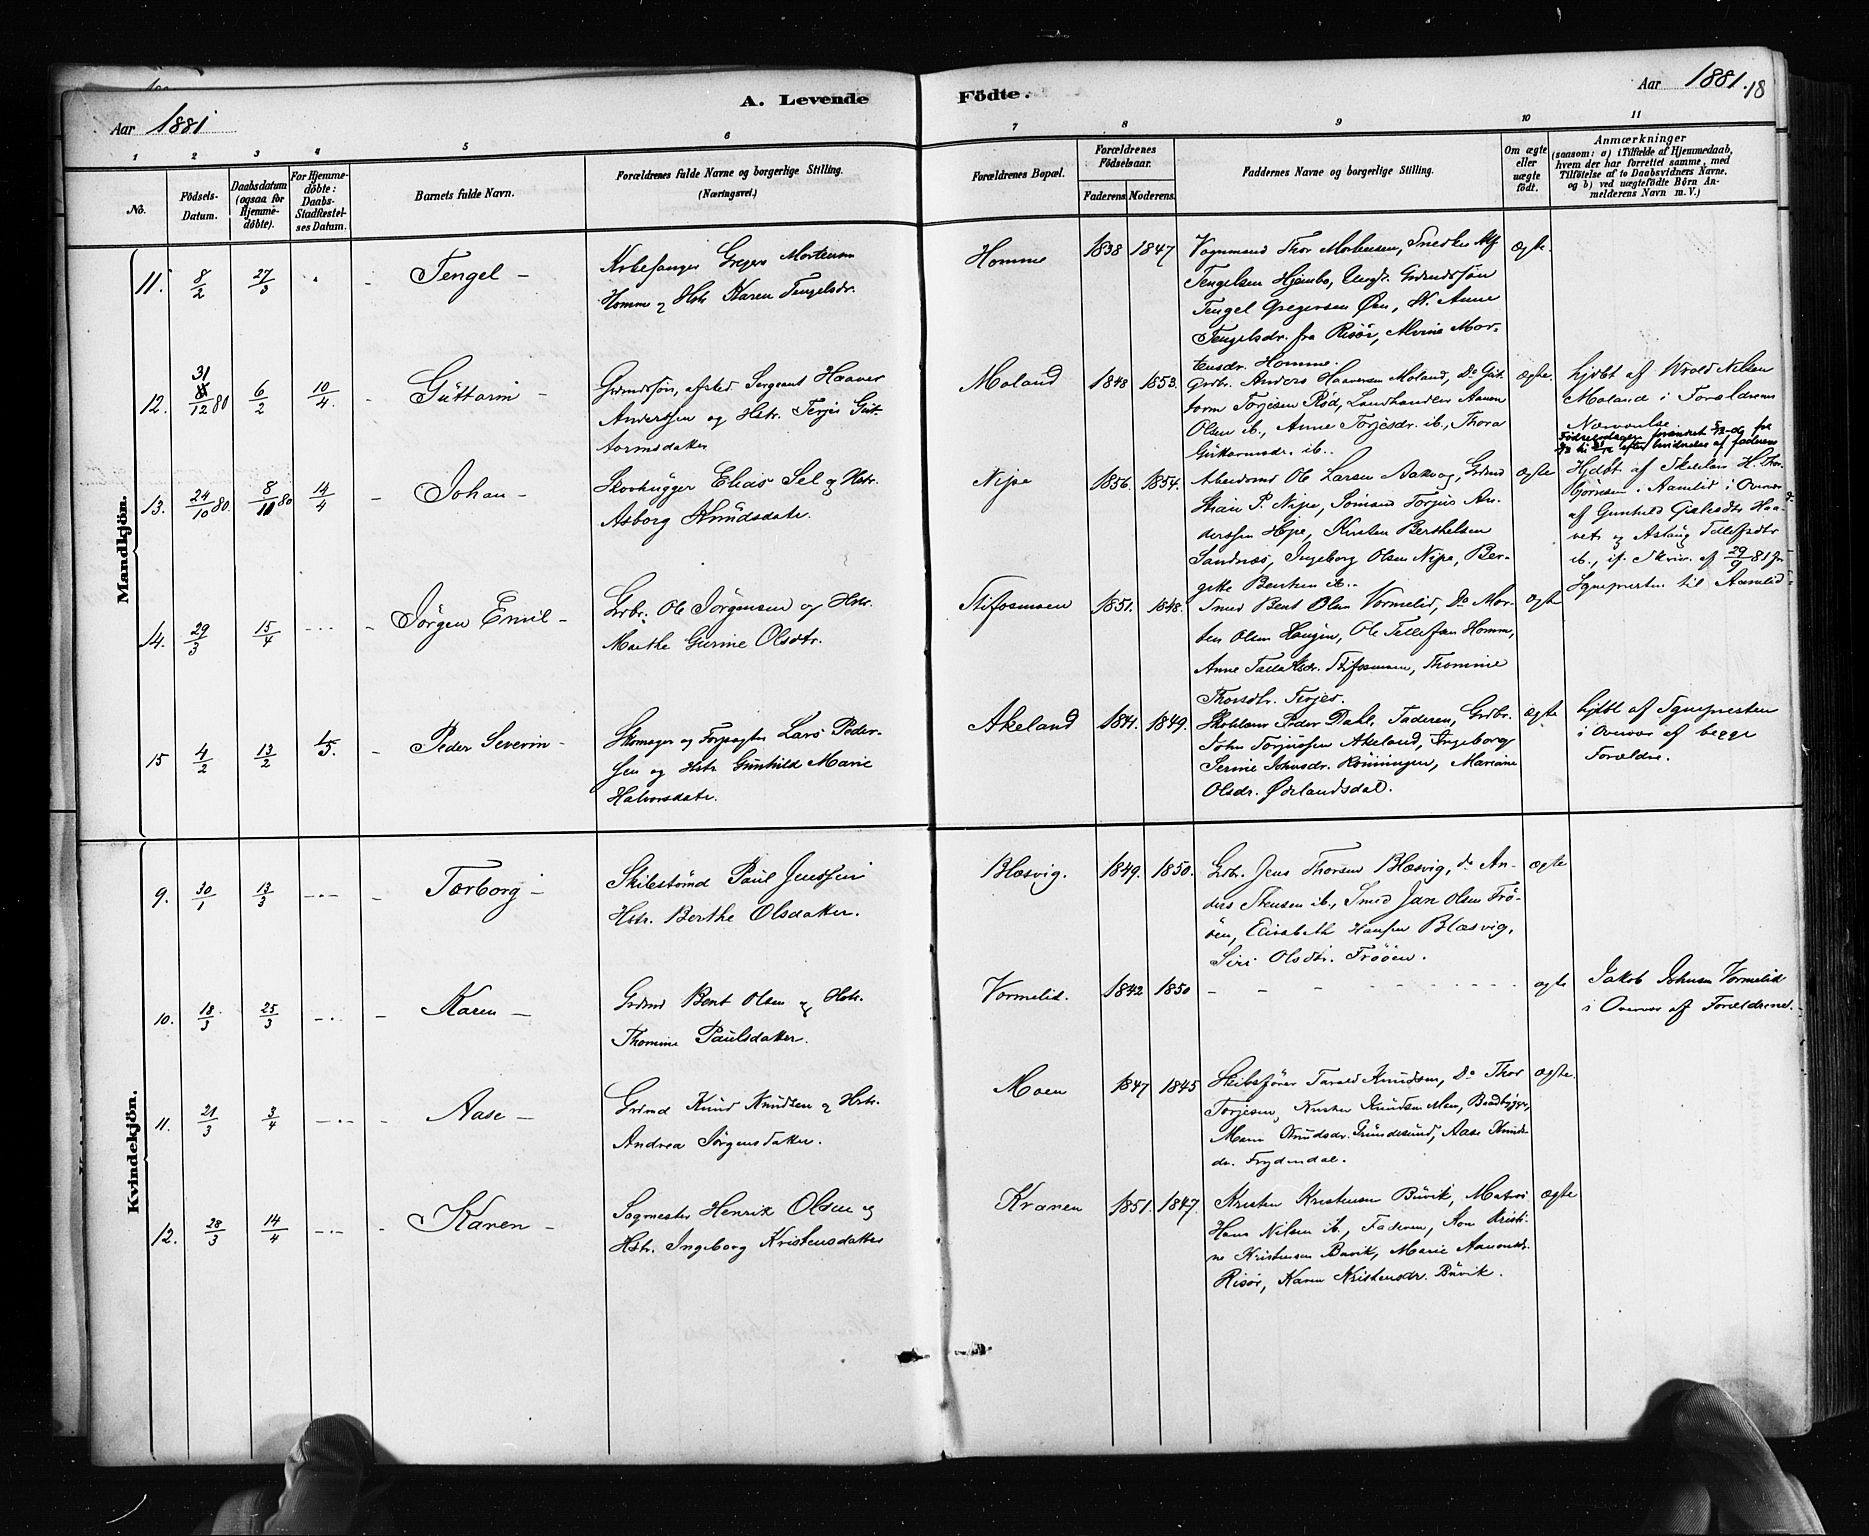 Aar 1881
A. Levende Födte.
Aar 1881. 18
1 2 3 4 5 6 7 8 9 10 11
No.
Födsels-Datum.
Daabsdatum (ogsaa for Hjemme-döbte).
For Hjemme-döbte: Daabs-Stadfæstel-ses Datum.
Barnets fulde Navn.
Forældrenes fulde Navne og borgerlige Stilling. (Næringsvei.)
Forældrenes Bopæl.
Forældrenes Födselsaar.
Faderens. Moderens.
Faddernes Navne og borgerlige Stilling.
Om ægte eller uægte födt.
Anmærkninger
(saasom: a) i Tilfælde af Hjemmedaab, hvem der har forrettet samme, med Tilföielse af to Daabsvidners Navne, og b) ved uægtefödte Börn Anmelderens Navn m. V.)
Mandkjön.
11. 8/2 27/3 Tengel -
Homme og Hstr Karen Tengelsdr.
Homme 1838 1847
Vognmand Thor Mortensen, Snedker Alf
Tengelsen Hjembo, Ungk. Grdmdssön
Tengel Gregersen Öen, Anne
Tengelsdr. fra Risör, Alvine Mor-
tensdr. Homme.
Ægte.
12. 31/12 80 6/2 10/4 Guttorm -
Grdmdssön, afsked. Sergeant Haaver
Anderssen og Hstr. Terjer Gut-
tormsdatter
Moland 1848 1853.
Grdbr. Anders Haaversen Moland, Do Gut-
torm Torjesen Röd, Landhandler Aanon
Olsen ib., Anne Torjesdr. ib., Thora
Guttormsdr. ib.
Ægte.
hjdbt af Wrold Nilsen
Moland i Forældrenes
Nærværelse
13. 24/10 80 8/11 80 14/4 - Johan -
Skovhugger Elias Sel og Hstr.
Asborg Knudsdatr.
Nipe 1856. 1854.
Arbeidsmd Ole Larsen Aakvog, Grdmd
P. Nipe, Sömand Torjus An-
derssen Hope, Kristen Berthelsen
Sandnæs, Ingeborg Olsen Nipe, Ber-
gitte Bentsen ib.
Ægte
Hjdbt af Skolelær. H. Thor-
björnsen i Aamlid i Overvær
af Gunhild
og Aslaug Tellefsdtr
ib., if. Skriv. af 29/9 81 fra
Sognepresten til Aamlid
14. 29/3 15/4 - Jörgen Emil -
Grdbr. Ole Jörgensen og Hstr.
Marthe Gurine Olsdtr.
Stifosmoen 1851. 1848.
Smed Bent Olsen Vormelid, Do Mor-
ten Olsen Haugen, Ole Tellefsen Homm,
Anne Tallaksdr. Stifosmoen, Thomine
Thorsdtr. Terjes.
ægte
15 4/2 13/2 1/5. - Peder Severin -
Skomager og Forpagter Lars Peder-
sen og Hstr Gunhild Marie
Halvorsdatr.
Akeland 1841. 1849.
Skolelærer Peder Dahl, Faderen, Grdbr.
John Torjussen Akeland, Ingeborg
Serine Johnsdr. Rönningen, Mariane
Olsdr. Örlandsdal.
ægte
hjdbt af Sognepresten
i Overvær af begge
Forældre.
Kvindekjön.
9. 30/1 13/3 - Torborg -
Skibstömd Paul Jenssen
Hstr. Berthe Olsdatter.
Blæsvig. 1849. 1850.
Grdbr. Jens Thorsen Blæsvig, do An-
ders Stensen ib., Smed Jan Olsen Frö-
öen, Elisabeth Hansen Blæsvig,
Siri Olsdtr. Frööen.
ægte
10. 18/3 25/3 - Karen -
Grdmd Bent Olsen og Hstr.
Thomine Paulsdatter.
Vormelid. 1842 1850
ægte
Jakob Johnsen Vormelid
i Overvær af Forældrene.
11. 21/3 3/4 - Aase -
Grdmd Knud Knudsen og Hstr.
Andrea Jörgensdatter.
Moen 1847 1845
Skibsförer Tarald Knudsen, Do Thor
Torjesen, Kristen Knudsen Moen, Baadbygger,
Maren Knudsdr. Grundesund, Aase Knuds-
dr. Frydendal.
Ægte.
12. 28/3 14/4 - Karen -
Sagmester Henrik Olsen og
Hstr. Ingeborg Kristensdatter
Kranen 1851. 1847.
Kristen Kristensen Buvik, Matros
Hans Nilsen ib., Faderen, Kone Kristi-
ne Kristensen Buvik, Marie Aanonsdr.
Risör, Karen Kristensdr. Buvik.
Ægte